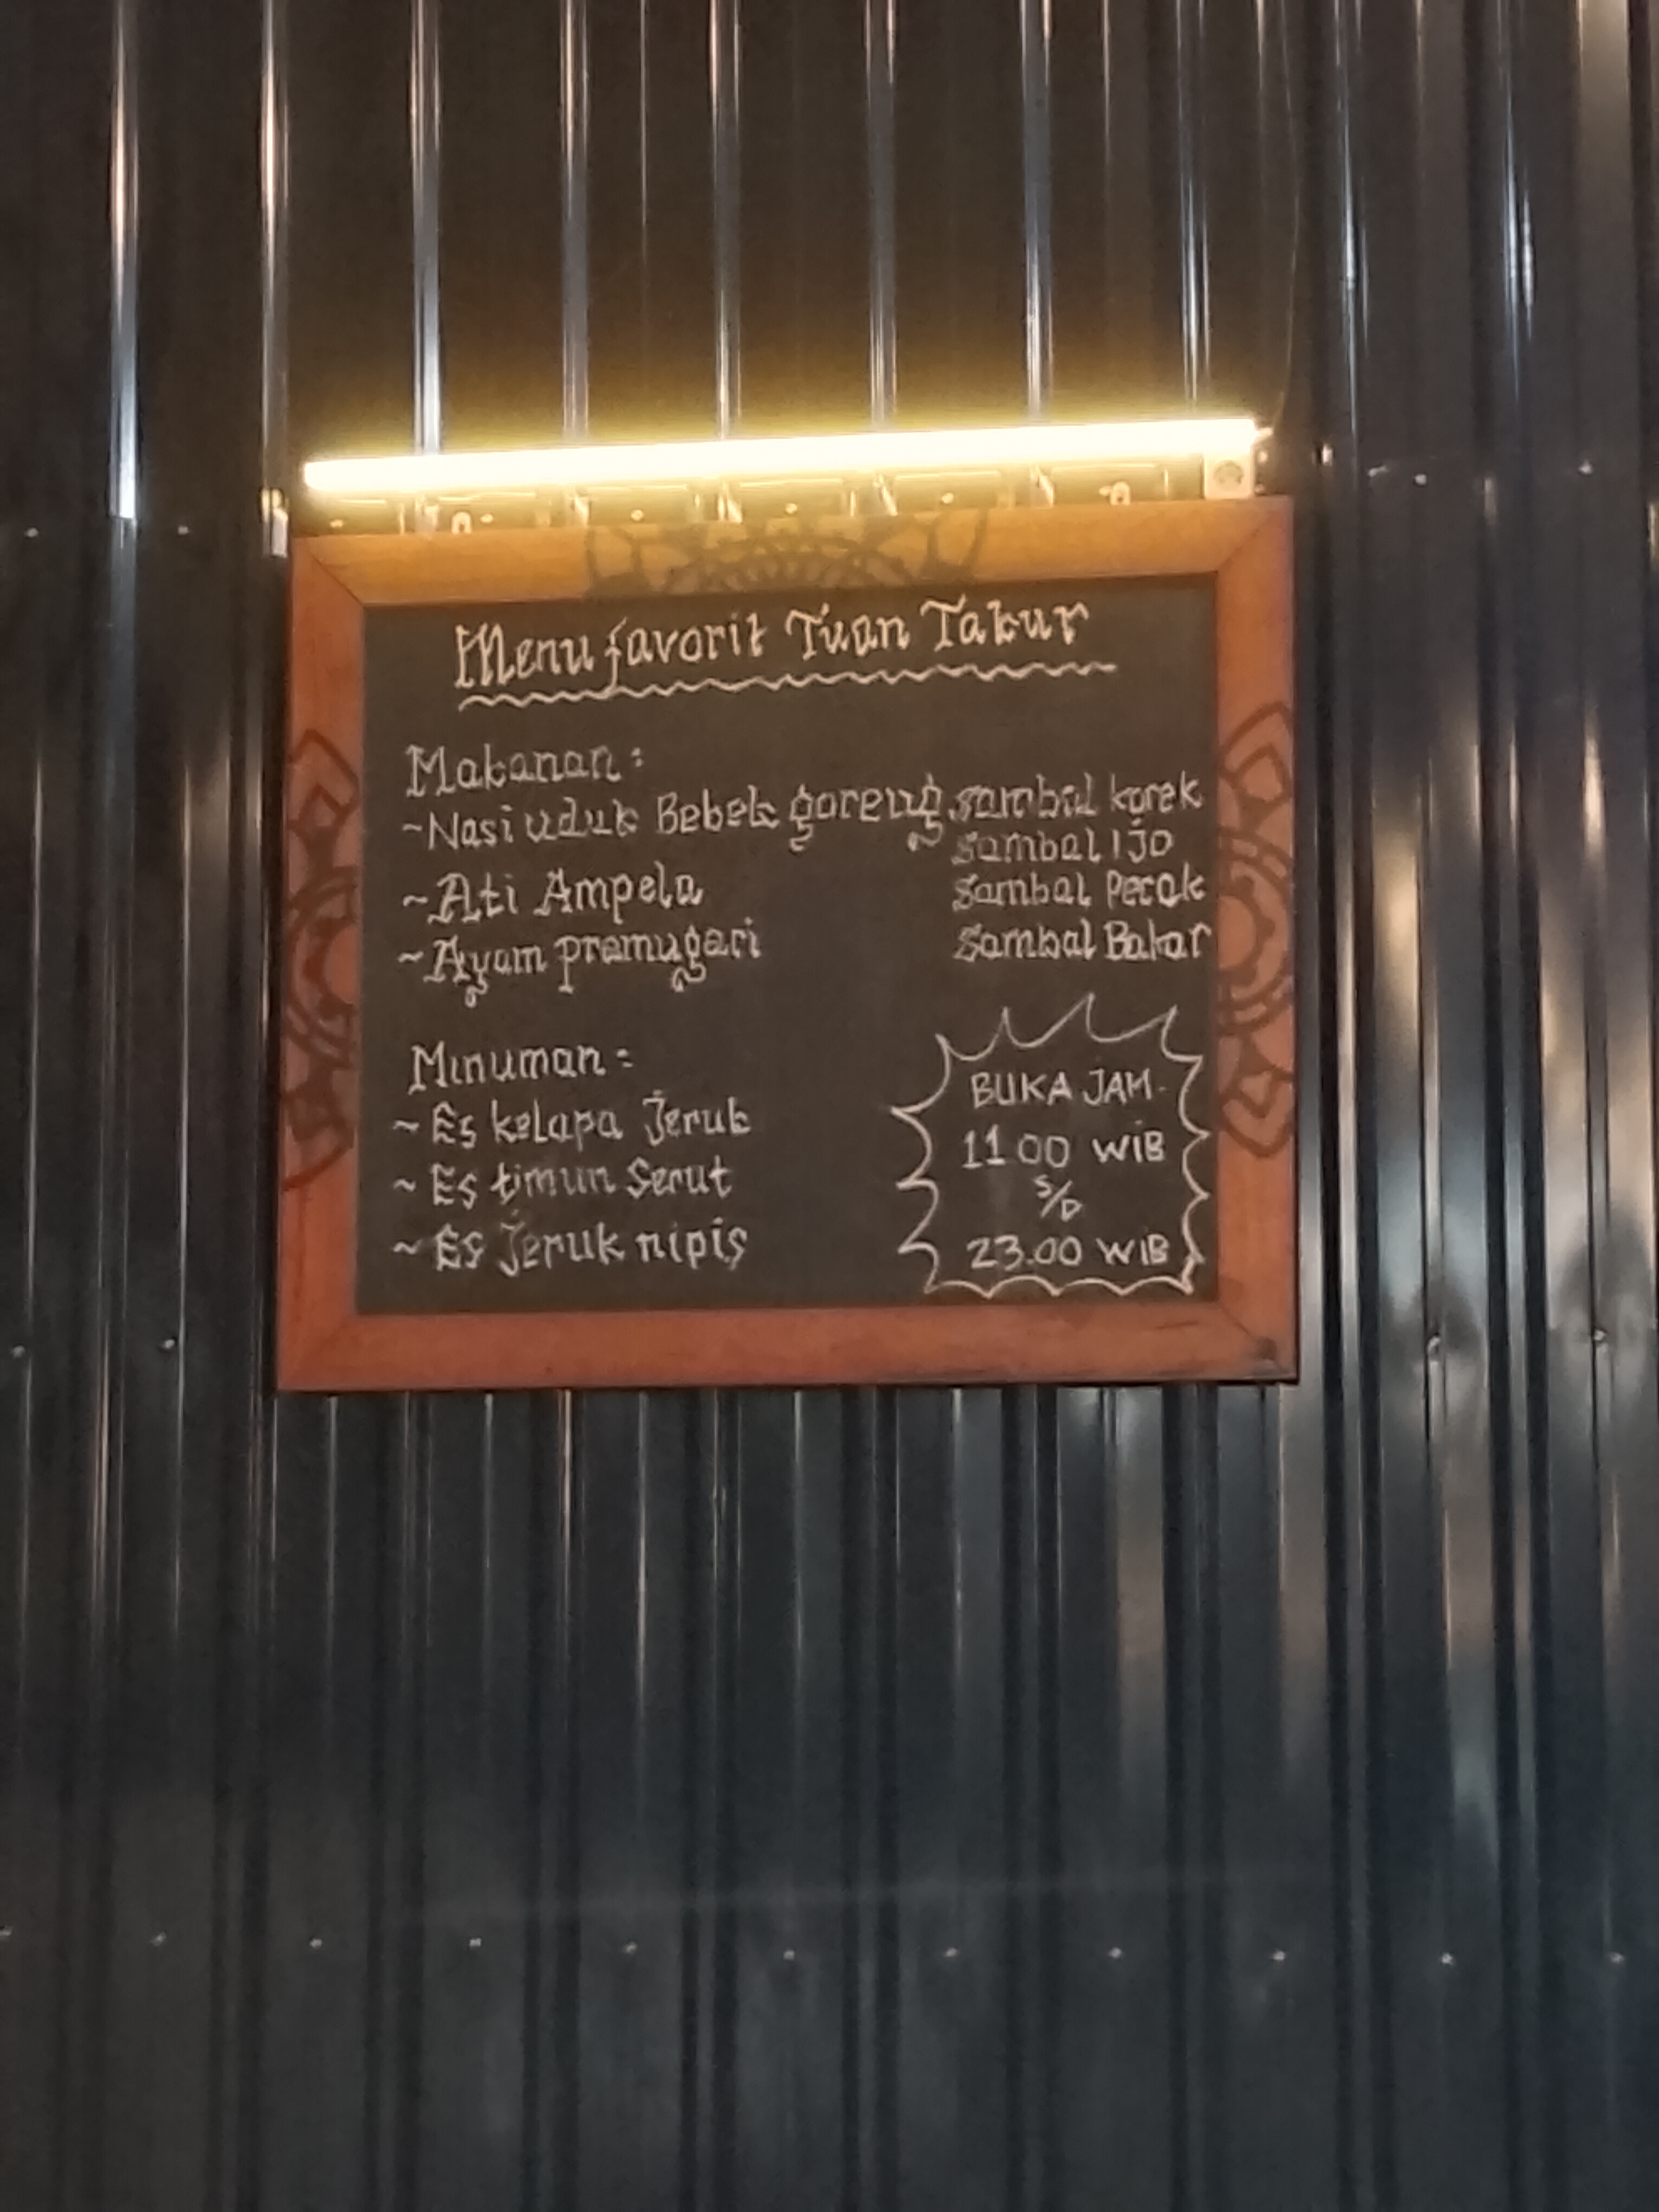 Menu favorit Tuan Takur
Makanan :
~ Nasi uduk Bebek goreng sambal korek
sambal Ijo
~ Ati Ampela sambal Pecak
~ Ayam pramugari sambal Bakar
Minuman :
~ Es kelapa Jeruk
~ Es timun Serut
~ Es Jeruk nipis
BUKA JAM.
11 00 WIB
S/D
23.00 WIB